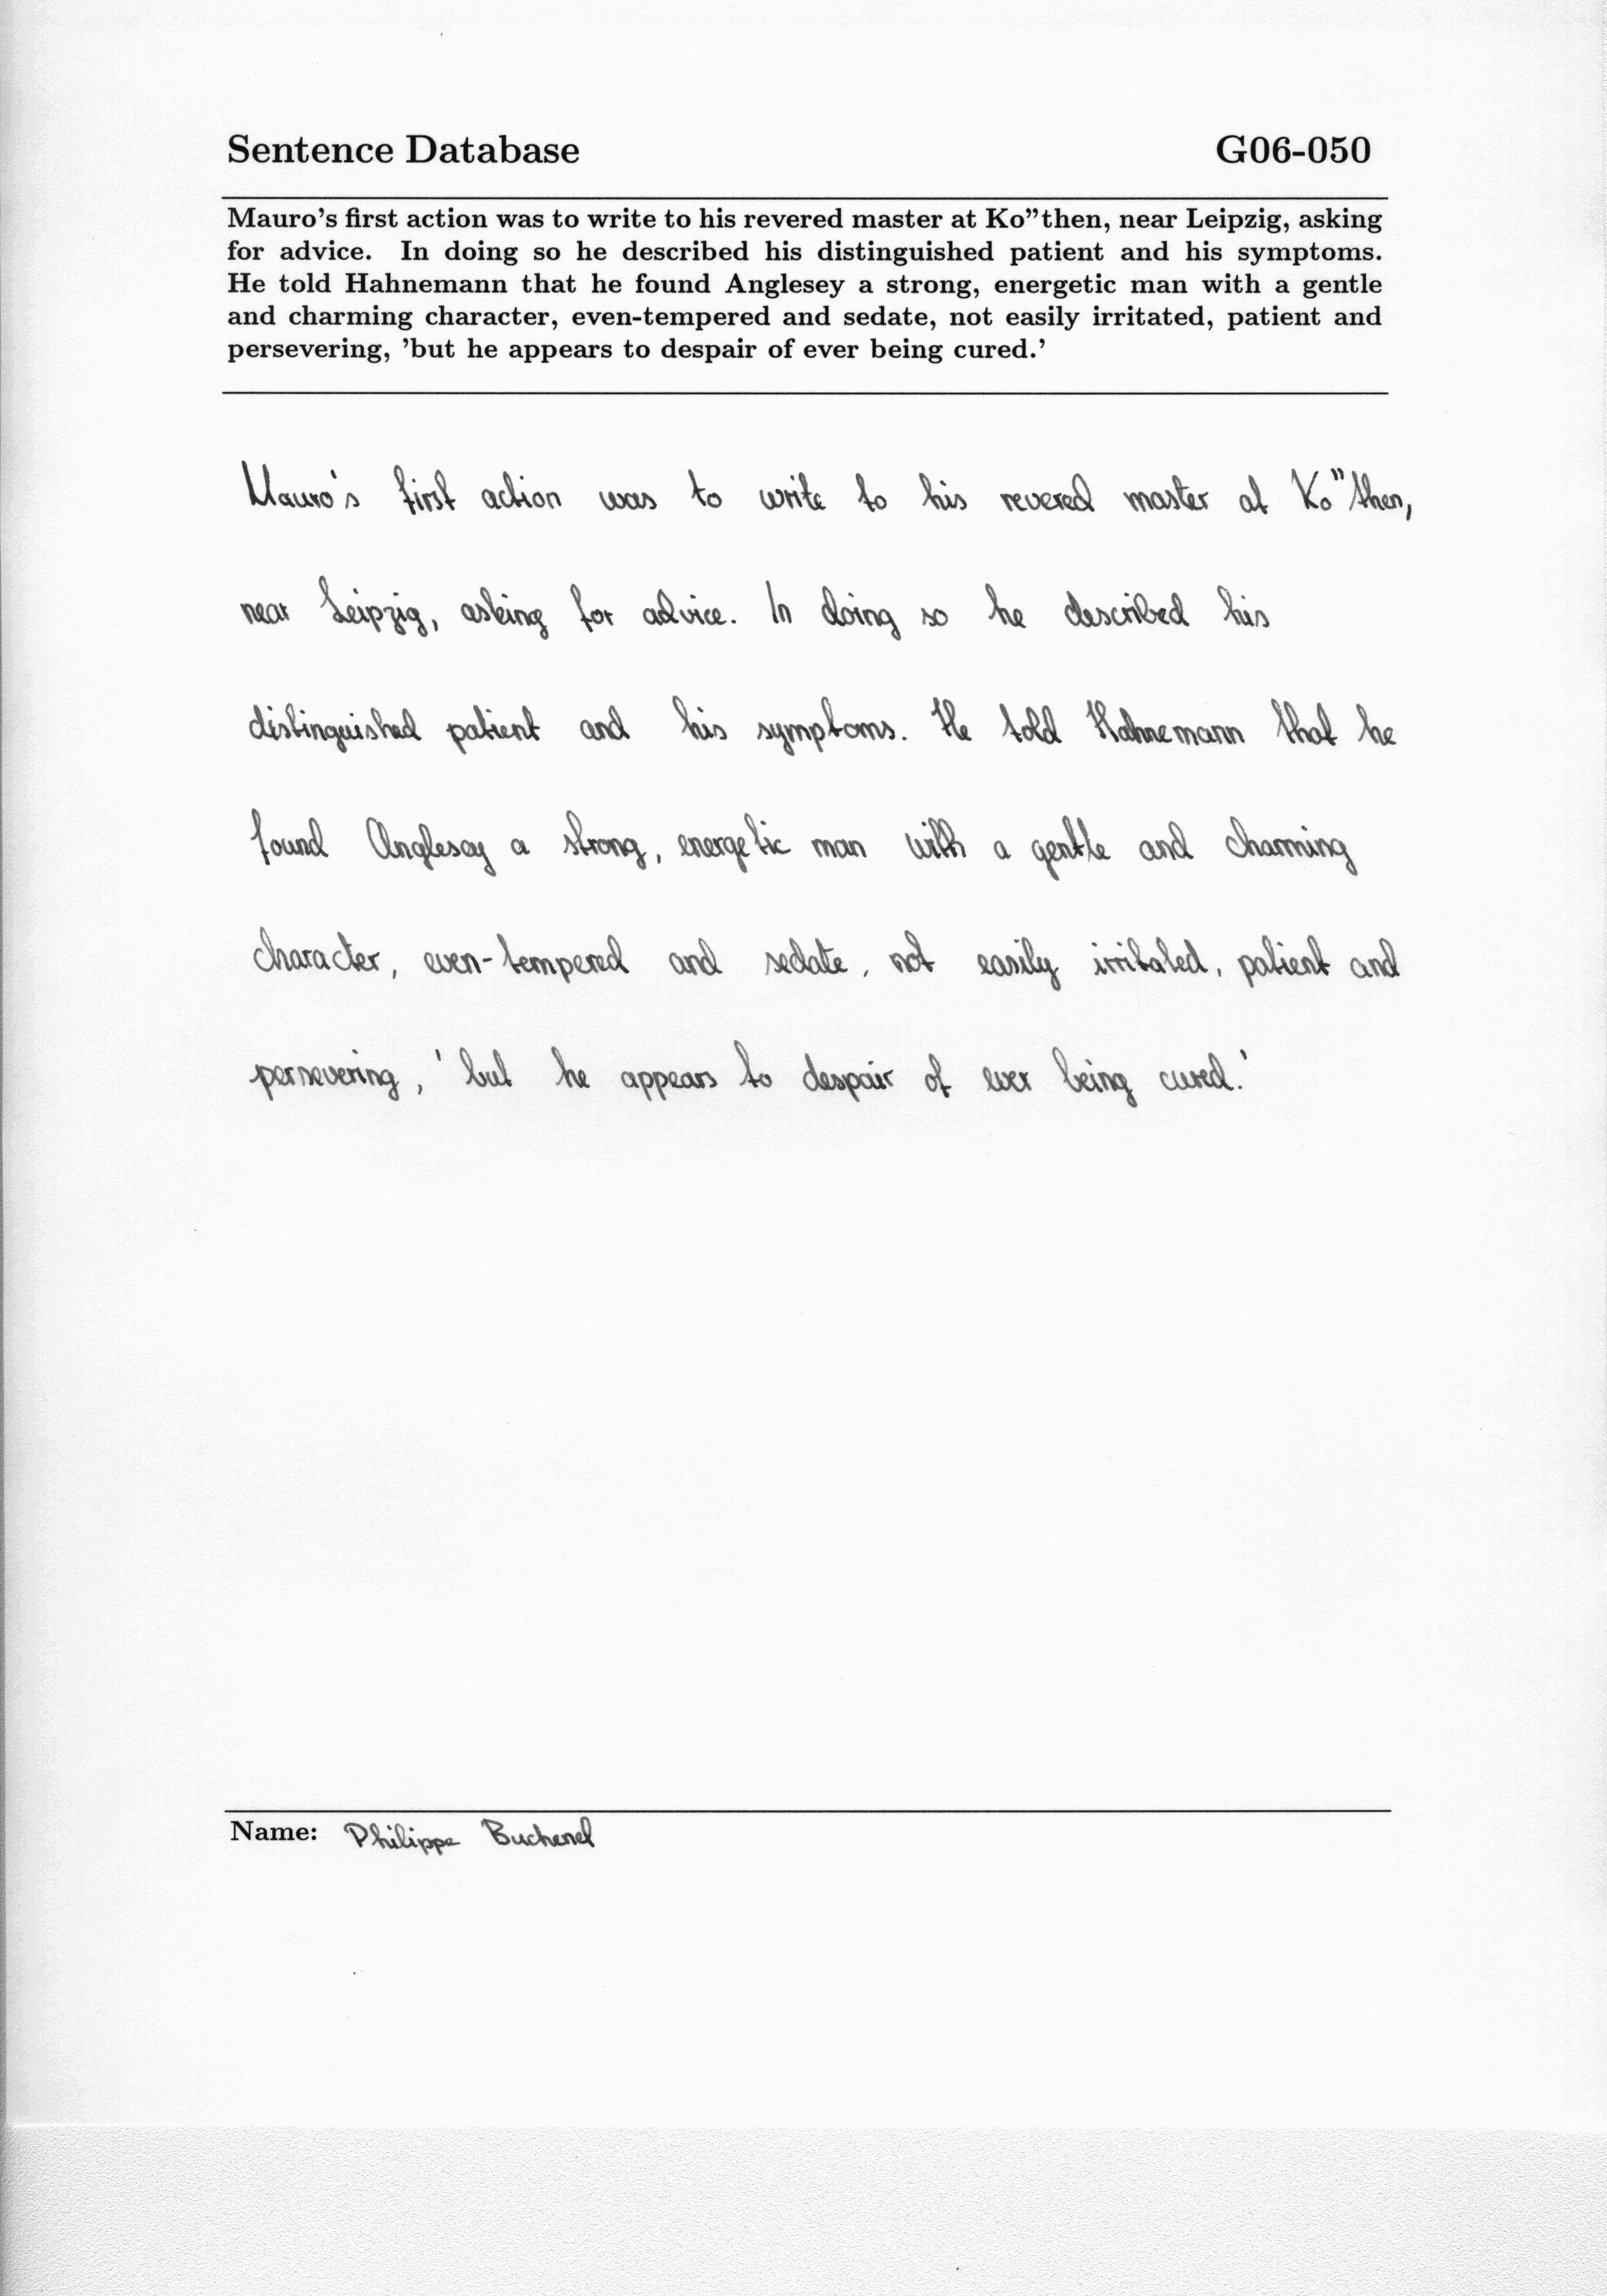 Sentence Database G06-050
Mauro's first action was to write to his revered master at Ko"then, near Leipzig, asking
for advice. In doing so he described his distinguished patient and his symptoms.
He told Hahnemann that he found Anglesey a strong, energetic man with a gentle
and charming character, even-tempered and sedate, not easily irritated, patient and
persevering, 'but he appears to despair of ever being cured.'
Mauro's first action was to write to his revered master at Ko"then,
near Leipzig, asking for advice. In doing so he described his
distinguished patient and his symptoms. He told Hahnemann that he
found Anglesay a strong, energetic man with a gentle and charming
character, even-tempered and sedate, not easily irritated, patient and
persevering, 'but he appears to despair of ever being cured.'
Name: Philippe Buchenel